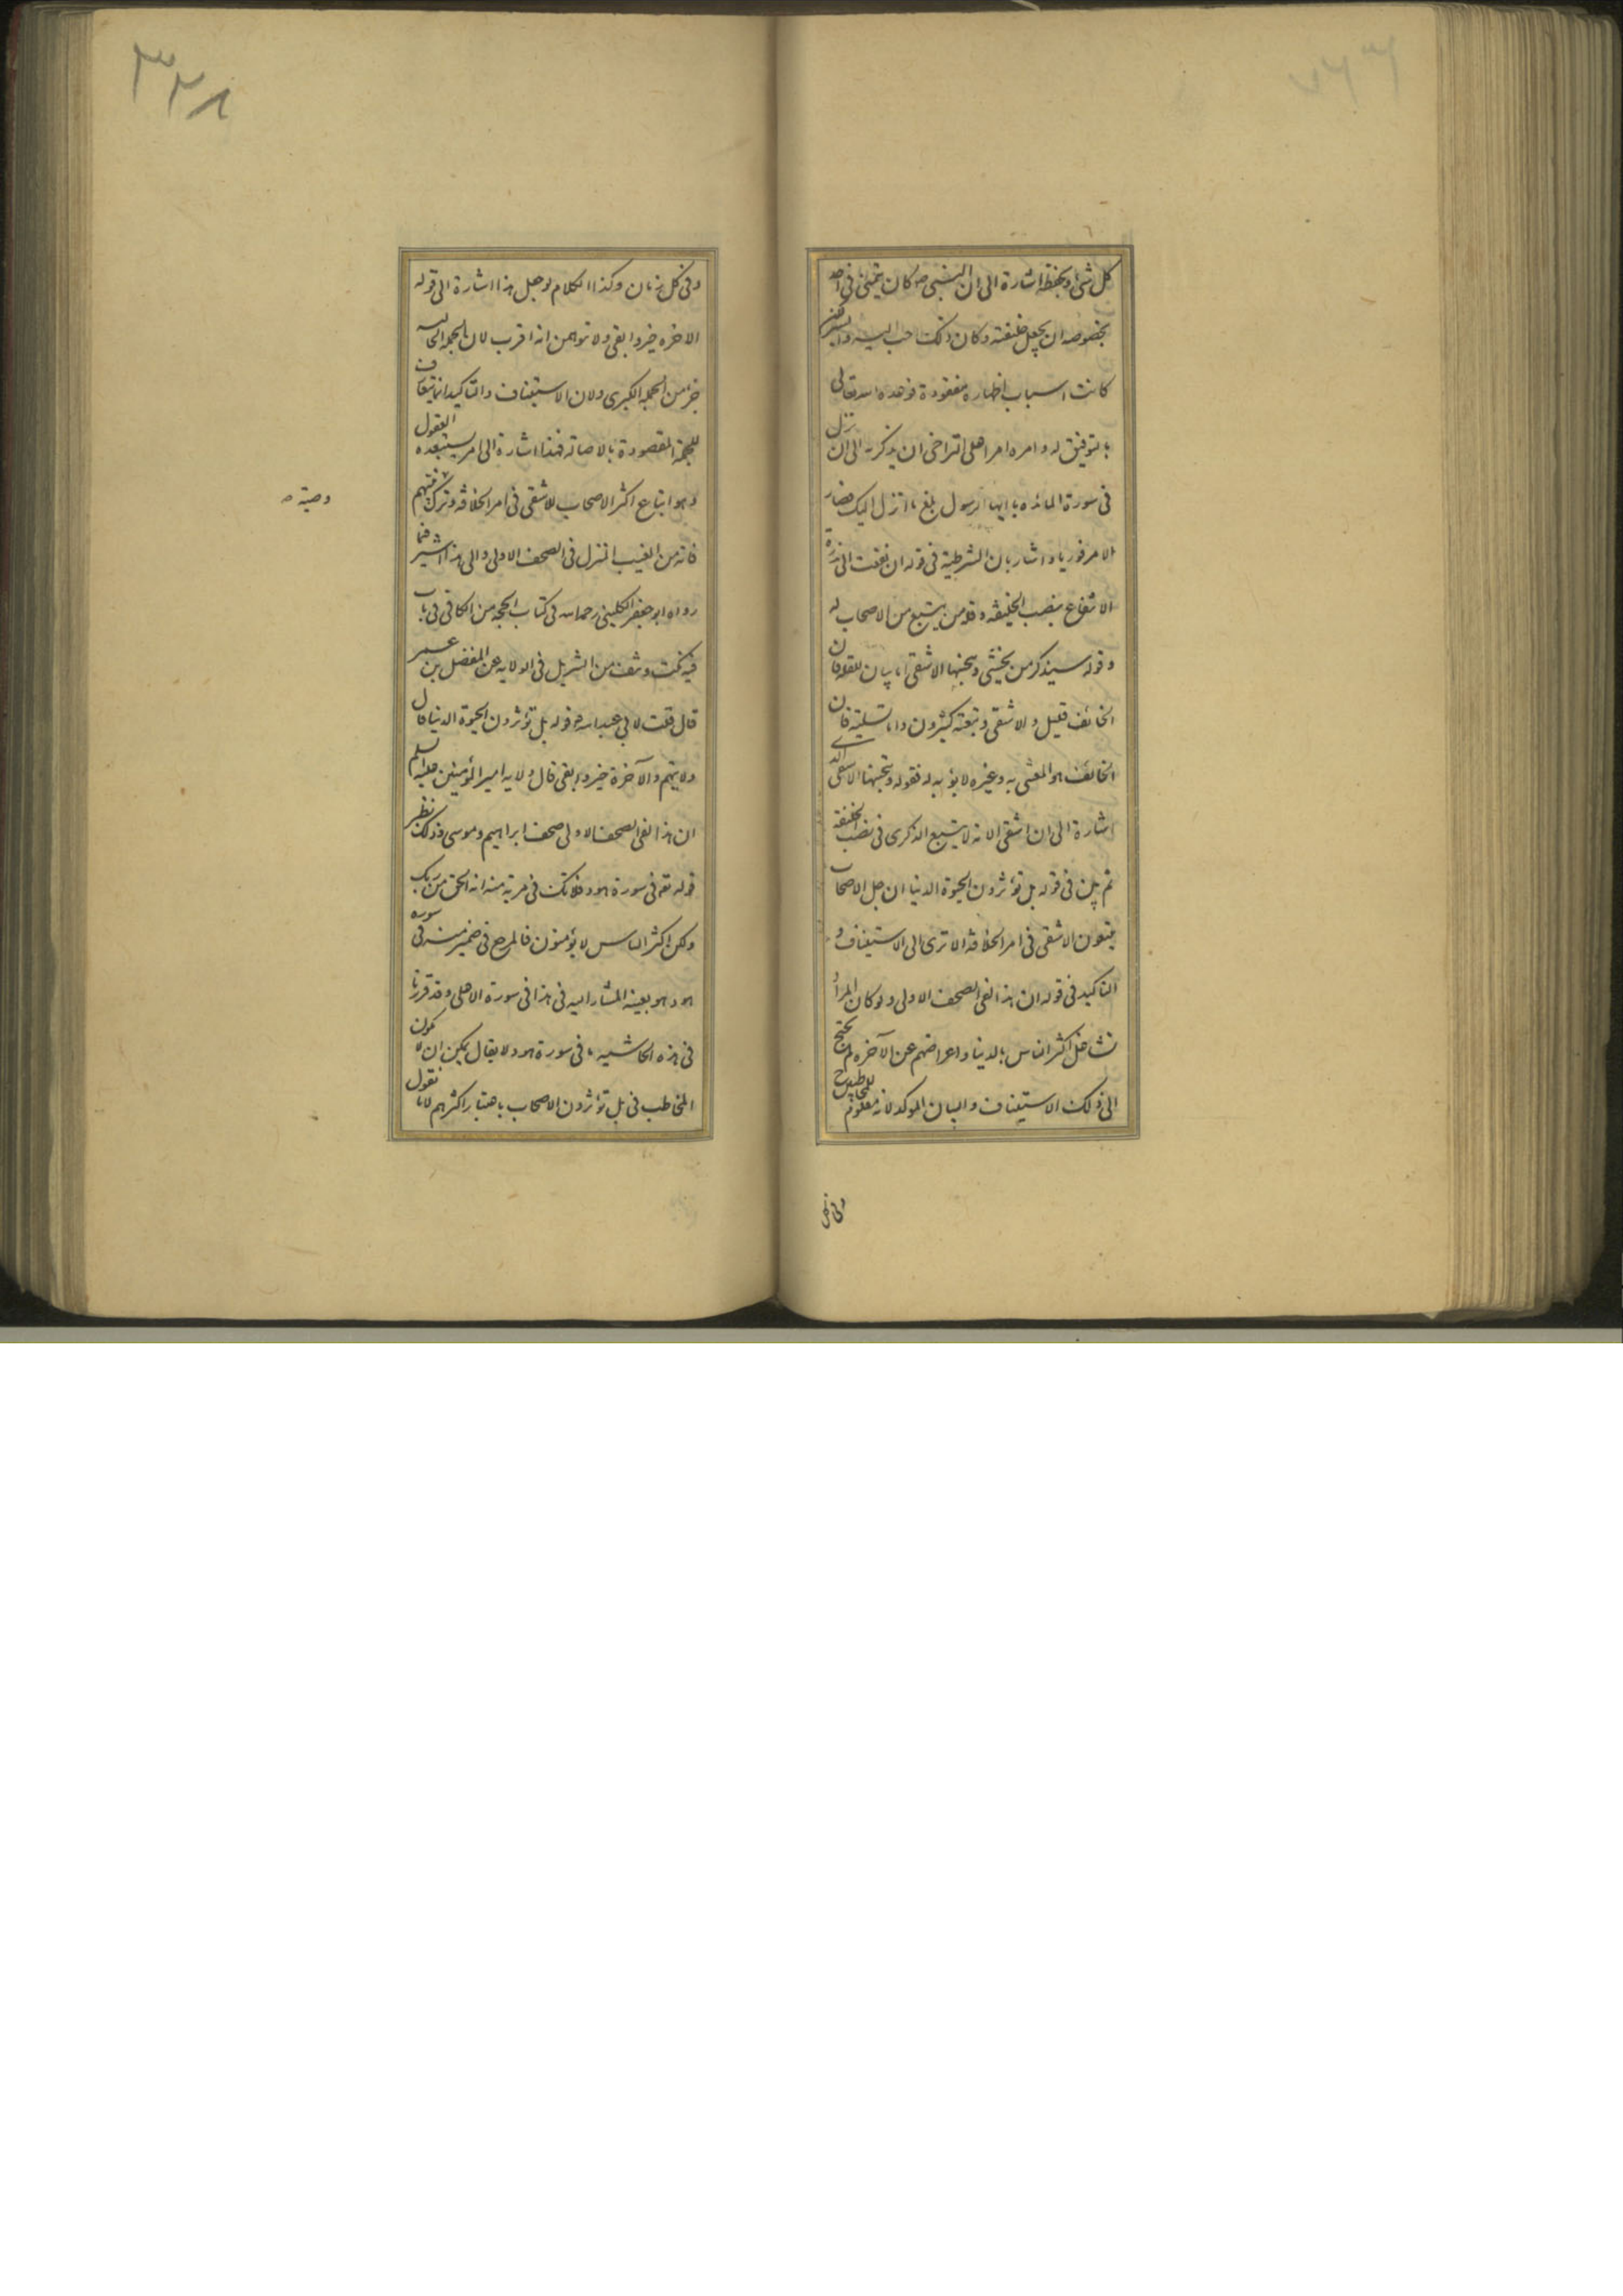 كل شئ ويحفظه اشارة الى ان النبى ص كان يتمنى فى احد
بخصوصه ان يجعل خليفته وكان ذلك حب اليه والكن
كانت اسباب اظهاره مفقودة فوعده الله تعالى
بالتوفيق له وامره امرا على التراخى ان يذكر به الى ان نزل
فى سورة المائده يا ايها الرسول بلغ ما انزل اليك فصار
الامر فوريا واشار بان الشرطية فى قوله ان نفعت الى ندرة
الانتفاع بنصب الخليفة وقلة من يتبع من الاصحاب له
وقوله سيذكر من يخشى ويتجنبها الاشقى اما بيان للقلة فان
الخائف قليل والاشقى وتبعته كثيرون واما تسلية فان
الخائف هو المعتنى به وغيره لا يؤبه له فقوله ويتجنبها الاشقى الذى
اشارة الى ان اشقى الامة لا يتبع الذكرى فى نصب الخليفة
ثم بين فى قوله بل تؤثرون الحيوة الدنيا ان جل الاصحاب
يتبعون الاشقى فى امر الخلافة الا ترى الى الاستيناف و
التاكيد فى قوله ان هذا لفى الصحف الاولى ولو كان المراد
تشاغل اكثر الناس بالدنيا واعراضهم عن الآخره لم يحتج
الى ذلك الاستيناف والبيان الموكد لانه معلوم للمخاطبين
وفى كل
٣٢٨
وفى كل زمان وكذا الكلام لو جعل هذا اشارة الى قوله
الاخره خير وابقى ولا توهمن انه اقرب لان الجملة الحاليه
جزء من الجملة الكبرى ولان الاستيناف والتاكيد انما يتعلقان
للجملة المقصودة بالاصالة فهذا اشارة الى امر يستبعده العقول
وهو اتباع اكثر الاصحاب للاشقى فى امر الخلافة وترك
وصية ص
فانه من الغيب المنزل فى الصحف الاولى والى هذا اشير فيما
رواه ابو جعفر الكلينى رحمه الله فى كتاب الحجه من الكافى فى باب
فيه نكت ونتف من التنزيل فى الولايه عن المفضل بن عمر
قال قلت لابى عبدالله ع قوله بل تؤثرون الحيوة الدنيا قال
ولايتهم والآخرة خير وابقى قال ولايه امير المؤمنين عليه السلم
ان هذا لفى الصحف الاولى صحف ابراهيم وموسى وذلك نظير
قوله تعم فى سورة هود فلا تك فى مرية منه انه الحق من ربك
ولكن اكثر الناس لا يؤمنون فالمرجع فى ضمير منه فى سوره
هود هو بعينه المشار اليه فى هذا فى سورة الاعلى وقد قررنا
فى هذه الحاشيه ما فى سورة هود لا يقال يمكن ان لا يكون
المخاطب فى بل تؤثرون الاصحاب باعتبار اكثرهم لانا نقول